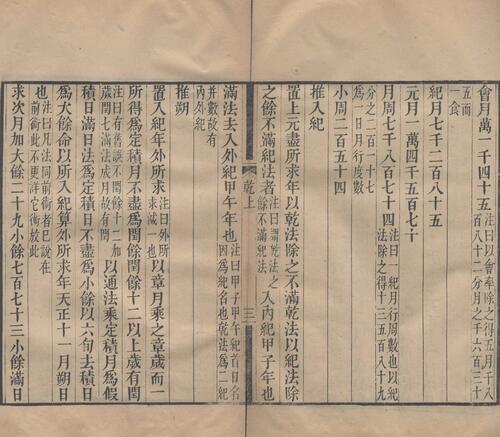 會月萬一千四十五注曰以會率除之得五月千八百八十二分月之千六百三十
五而一食
紀月七千二百八十五
元月一萬四千五百七十
月周七千八百七十四注曰紀月行周數也以紀法除之得十三五百八十九
分之二百一十七為一日月行度數
小周二百五十四
推入紀
置上元盡所求年以乾法除之不滿乾法以紀法除
之餘不滿紀法者注曰謂乾法之餘不滿紀法入內紀甲子年也
乾上
三
滿法去入外紀甲午年也注曰甲子甲午紀首日名因為紀名也乾法為二紀
并數故有內外紀
推朔
置入紀年外所求注曰外所求減一也以章月乘之章歲而一
所得為定積月不盡為閏餘閏餘十二以上歲有閏
注曰有舊誤不閏餘十二加歲閏七成滿月故有閏以通法乘定積月為假
積日滿日法為定積日不盡為小餘以六旬去積日
為大餘命以所入紀算外所求年天正十一月朔日
也注曰凡法同前術者已說在前術此不更詳它術放此
求次月加大餘二十九小餘七百七十三小餘滿日